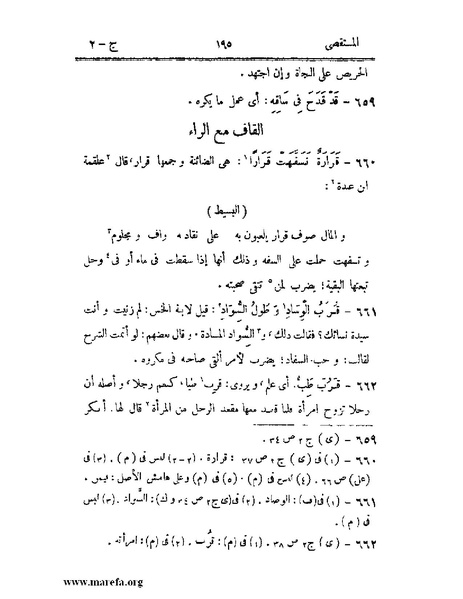 المستقصى ١٩٥ ج - ٢
الحريص على النجاة وإن اجتهد .
٦٥٩ - قَدْ قَدَحَ فِى سَاقِهِ : أى عمل ما يكره .
القاف مع الراء
٦٦٠ - قَرَارَةٌ تَسَفَّهَتْ قَرَارًا ١ : هى الضائنة و جمعها قرار ، قال ٢ علقمة
ابن عبدة ٢ :
( البسيط )
و المال صوف قرار يلعبون به على نقاده واف و مجلوم ٣
و تسفهت حملت على السفه و ذلك أنها إذا سقطت فى ماء أو فى ٤ وحل
تبعتها البقية ؛ يضرب لمن ٥ تتقى صحبته .
٦٦١ - قُرْبُ الْوِسَادِ ١ وَ طُولُ السِّوَادِ ٢ : قيل لابنة الخس : لم زنيت و أنت
سيدة نسائك ؟ فقالت ذلك ، و ٣ السواد المسادة . و قال بعضهم : لو أتمت الشرح
لقالت : و حب السفاد ؛ يضرب لأمر ألقى صاحبه فى مكروه .
٦٦٢ - قَرُبَ طِبٌّ . أى علم ، و يروى : قرب ١ طبا ، كنعم رجلا ، و أصله أن
رجلا تزوج امرأة فلما قعد معها مقعد الرجل من المرأة ٢ قال لها . أبكر
٦٥٩ - ( ى ) ج ٢ ص ٣٤ .
٦٦٠ - ( ١ ) فى ( ى ) ج ٢ ص ٣٧ : قرارة . ( ٢ - ٢ ) ليس فى ( م ) . ( ٣ ) فى
( على ) ص ٦٦ . ( ٤ ) ليس فى ( م ) . ( ٥ ) فى ( م ) وعلى هامش الأصل :
٦٦١ - ( ١ ) فى ( ف ) : الوصاد . ( ٢ ) فى ( ى ج ٢ ص ٣٤ و ك ) : السُّواد . ( ٣ ) ليس
فى ( م ) .
٦٦٢ - ( ى ) ج ٢ ص ٣٨ . ( ١ ) فى ( م ) : قُرْب . ( ٢ ) فى ( م ) : امرأته .
www.marefa.org